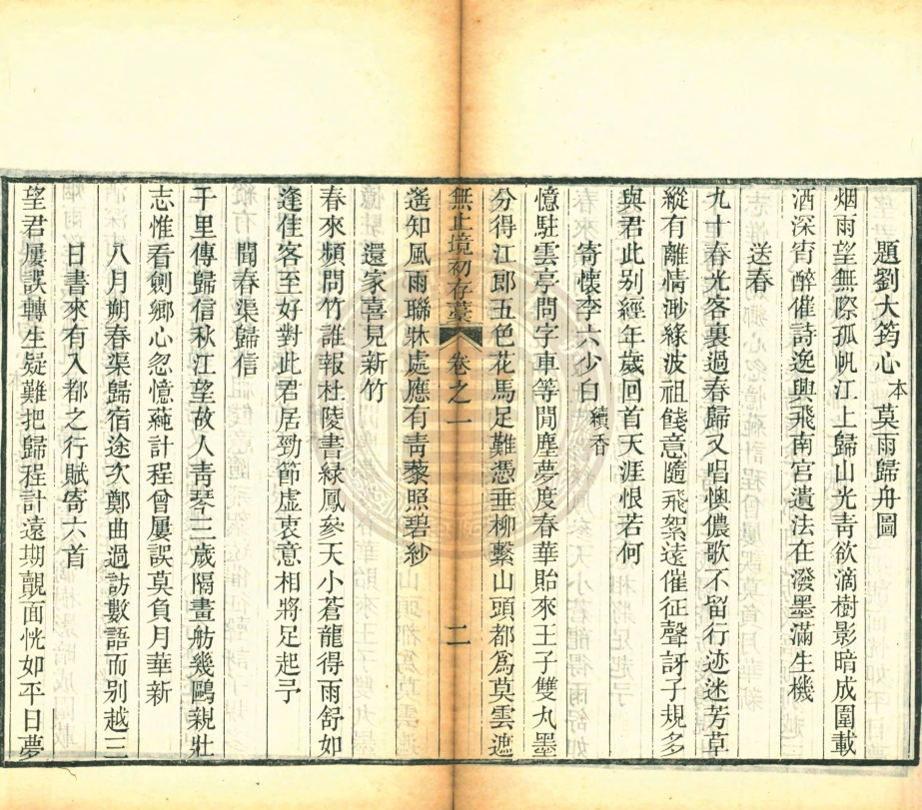 題劉大筠心本莫雨歸舟圖
烟雨望無際孤帆江上歸山光靑欲滴樹影暗成圍載
酒深宵醉催詩逸興飛南宮遺法在潑墨滿生機
送春
九十春光客裏過春歸又唱懊儂歌不留行迹迷芳草
縱有離情渺綠波祖餞意隨飛絮遠催征聲訝子規多
與君此別經年歲回首天涯恨若何
寄懷李六少白續香
憶駐雲亭問字車等閒塵夢度春華貽來王子雙丸墨
分得江郎五色花馬足難憑垂柳繫山頭都爲莫雲遮
無止境初存藁 卷之一 二
遙知風雨聯牀處應有靑藜照碧紗
還家喜見新竹
春來頻問竹誰報杜陵書綠鳳參天小蒼龍得雨舒如
逢佳客至好對此君居勁節虛衷意相將足起予
聞春渠歸信
千里傳歸信秋江望故人靑琴三歲隔畫舫幾鷗親壯
志惟看劍鄉心忽憶蒓計程曾屢誤莫負月華新
八月朔春渠歸宿途次鄭曲過訪數語而別越三
日書來有入都之行賦寄六首
望君屢誤轉生疑難把歸程計遠期覿面恍如平日夢